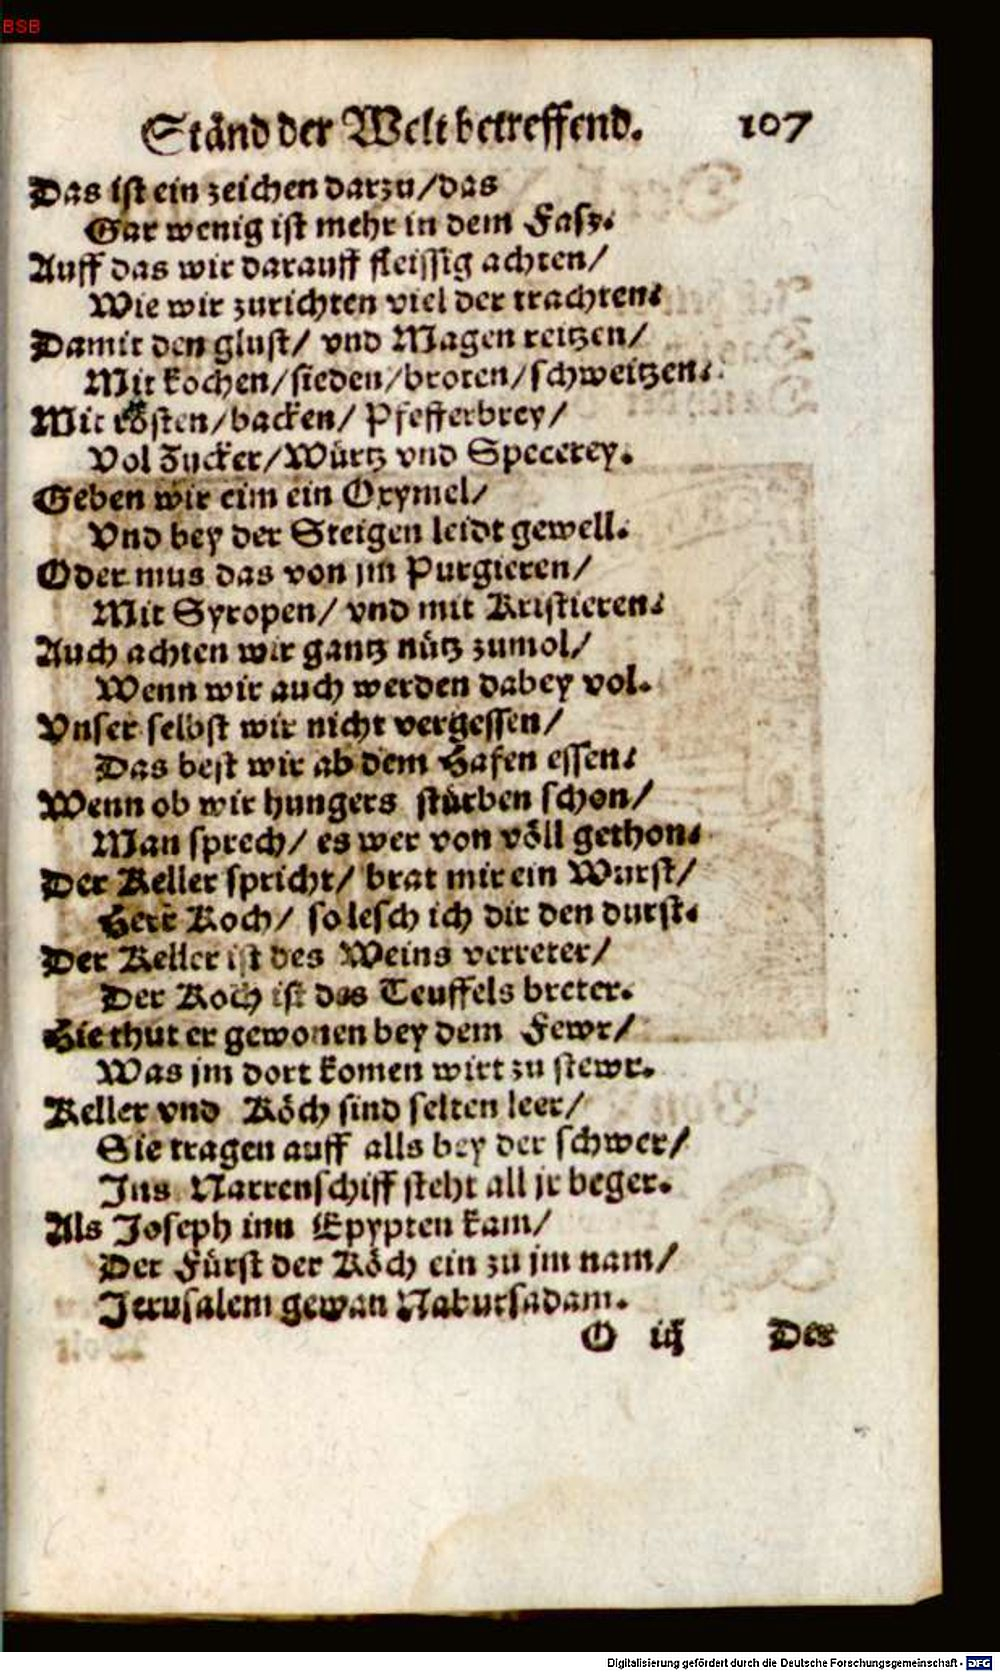 BSB
Ständ der Welt betreffend. 107
Das ist ein zeichen darzu/das
Gar wenig ist mehr in dem Fasz.
Auff das wir darauff fleissig achten/
Wie wir zurichten viel der trachten.
Damit den glust/ vnd Magen reitzen/
Mit kochen/sieden/broten/schweitzen.
Mit rösten/backen/ Pfefferbrey/
Vol Zucker/Würtz vnd Specerey.
Geben wir eim ein Oxymel/
Vnd bey der Steigen leidt gewell.
Oder mus das von jm Purgieren/
Mit Syropen/ vnd mit Kristieren.
Auch achten wir gantz nütz zumol/
Wenn wir auch werden dabey vol.
Vnser selbst wir nicht vergessen/
Das best wir ab dem Hafen essen.
Wenn ob wir hungers stürben schon/
Man sprech/ es wer von völl gethon.
Der Keller spricht/ brat mir ein Wurst/
Herr Koch/ so lesch ich dir den durst.
Der Keller ist des Weins verreter/
Der Koch ist des Teuffels breter.
Hie thut er gewonen bey dem Fewr/
Was jm dort komen wirt zu stewr.
Keller vnd Köch sind selten leer/
Sie tragen auff alls bey der schwer/
Ins Narrenschiff steht all jr beger.
Als Joseph inn Epypten kam/
Der Fürst der Köch ein zu jm nam/
Jerusalem gewan Nabursadam.
O iij Der
Digitalisierung gefördert durch die Deutsche Forschungsgemeinschaft - DFG